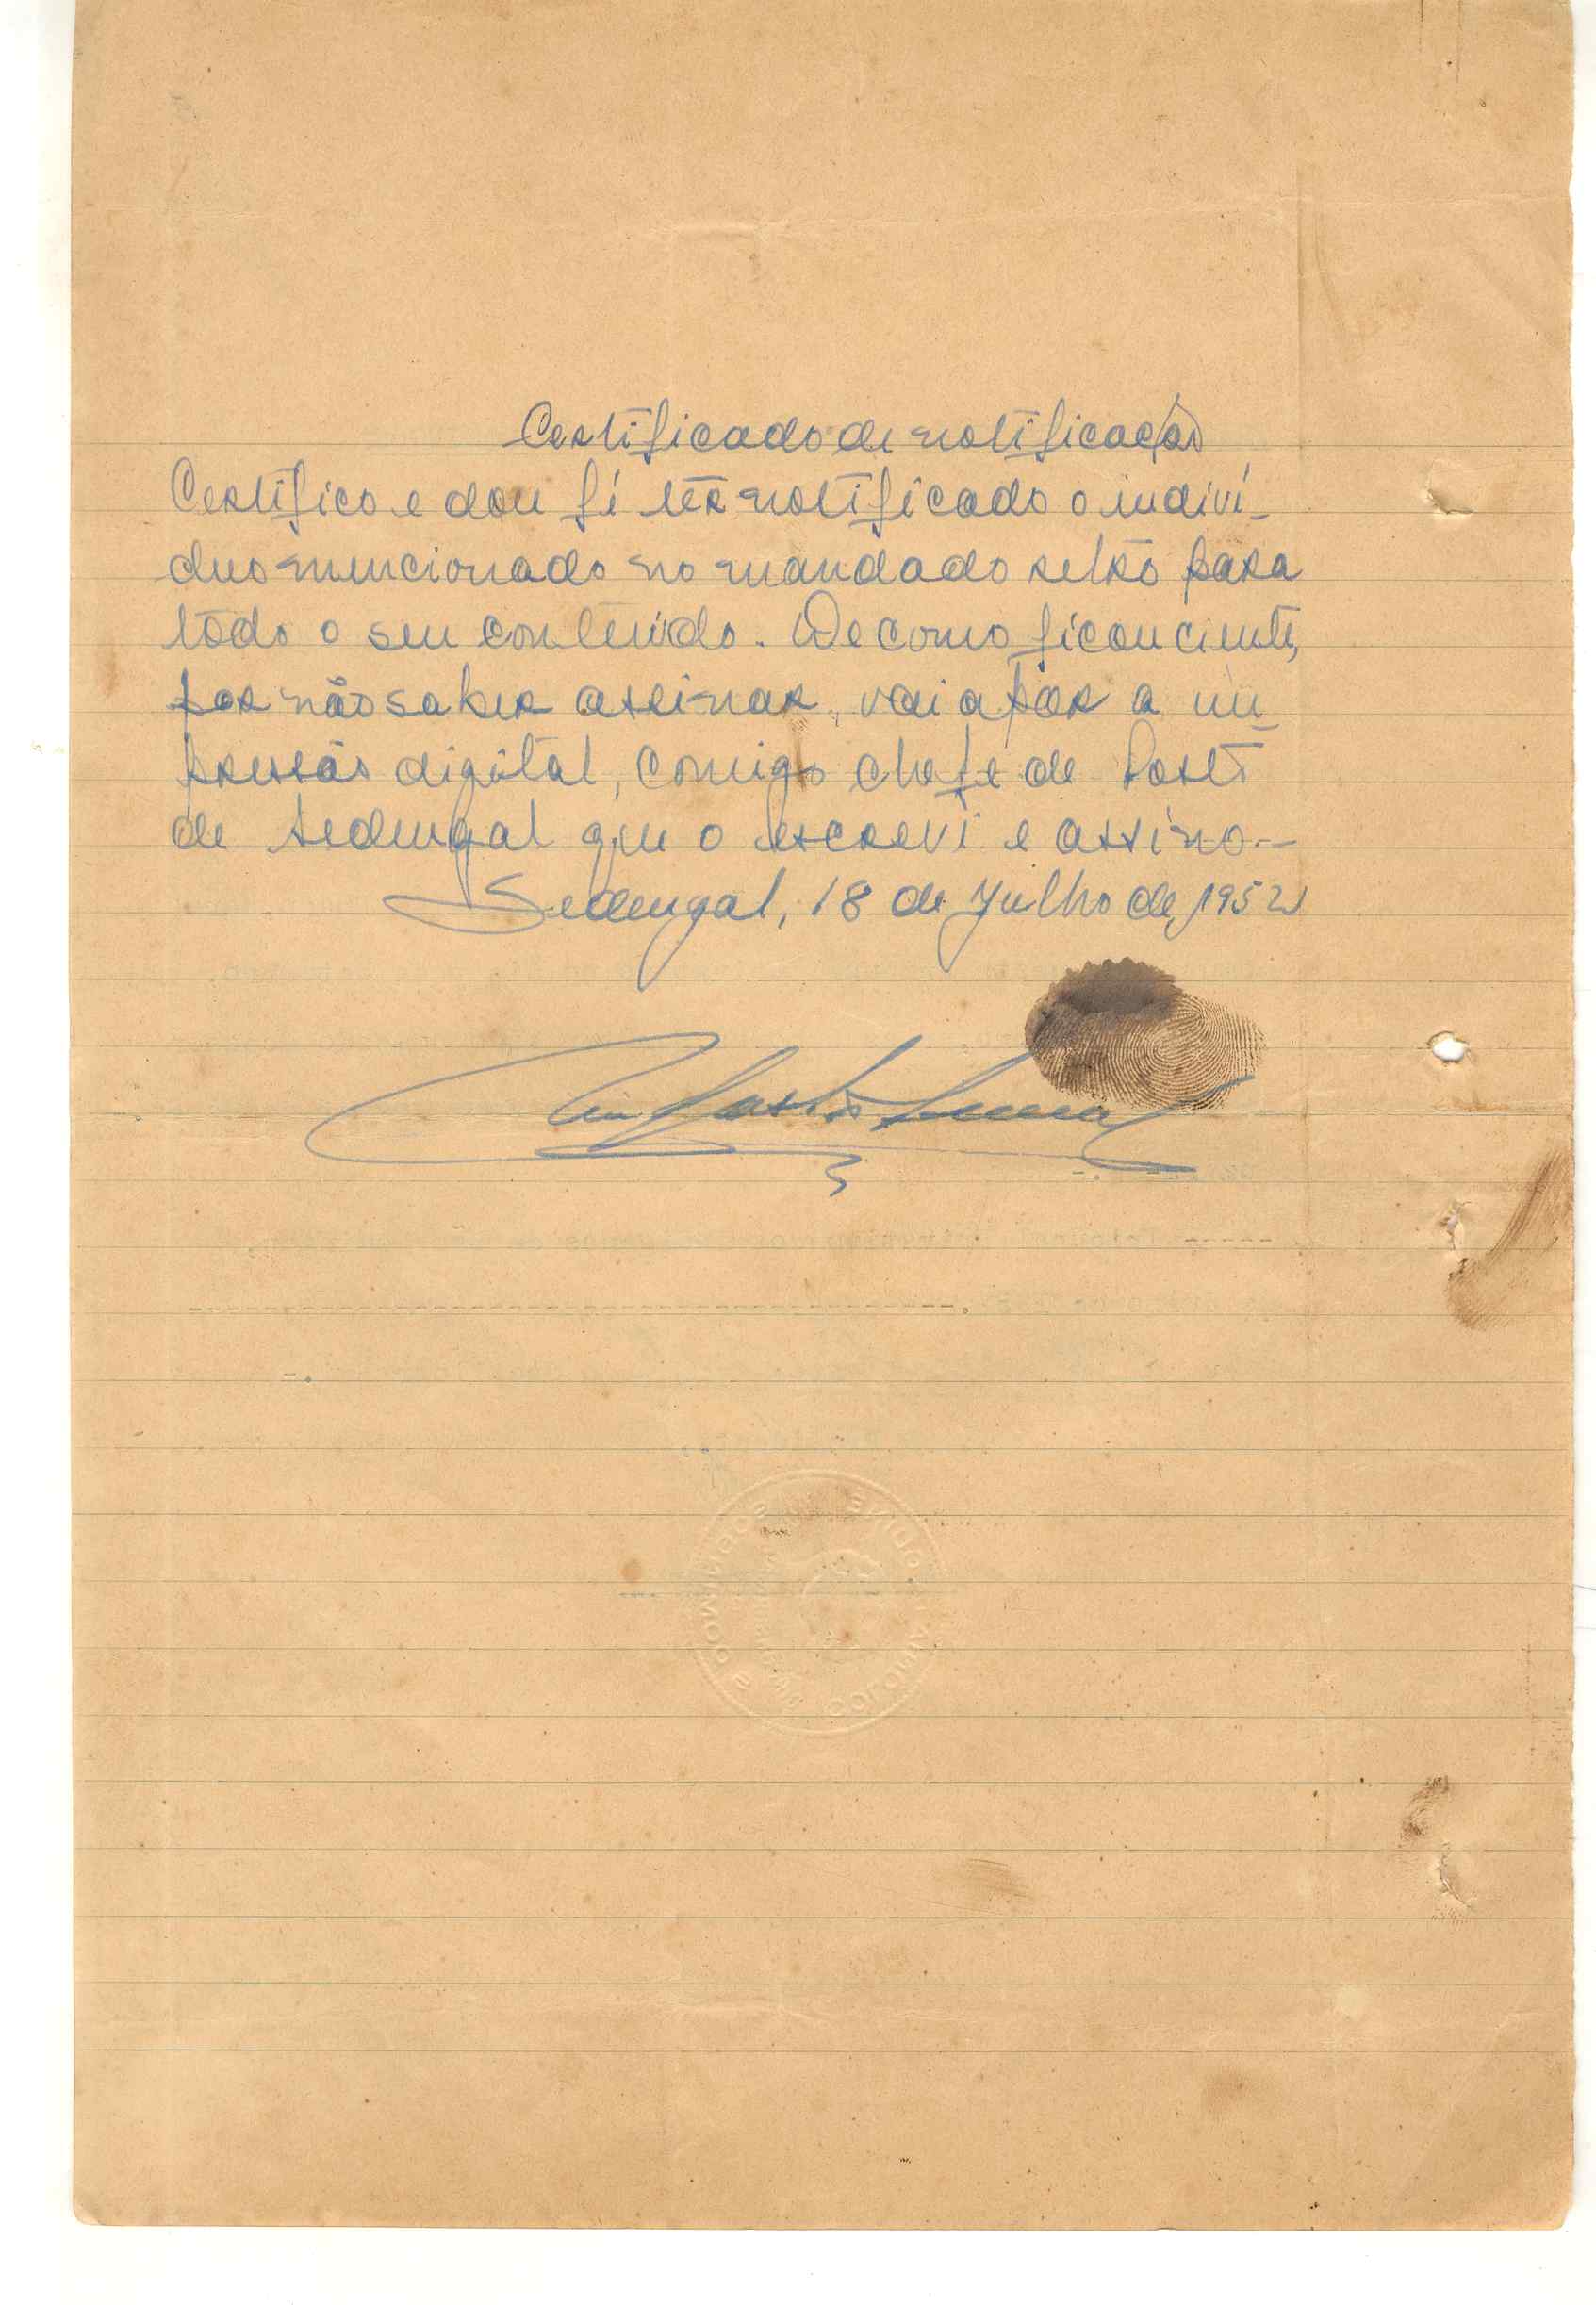 Certificado de notificação
Certifico e dou fé têr notificado o indiví-
duo mencionado no mandado retro para
todo o seu conteúdo. De como ficou ciente,
por não saber assinar, vai apôr a im-
pressão digital, comigo chefe de Posto
de Sedengal que o escrevi e assino.-
Sedengal, 18 de Julho de 1952